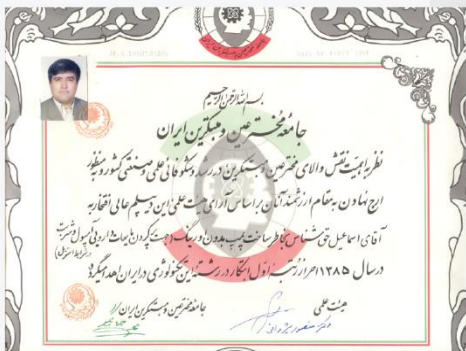 بسم الله الرحمن الرحیم
جامعه مخترعین و مبتکرین ایران
نظر به اهمیت نقش والای مخترعین و مبتکرین در رشد و شکوفائی علمی و صنعتی کشور و به منظور
ارج نهادن به مقام ارزشمند آنان بر اساس آرای هیئت علمی این دیپلم عالی افتخار به
آقای اسماعیل تقی شناس بخاطر ساخت پمپ بدون دررینگ جهت پر کردن مایعات داروئی آمپول و شربت
در سال ۱۳۸۵ احراز رتبه اول ابتکار در رشته تکنولوژی در ایران اهدا میگردد
هیئت علمی
جامعه مخترعین و مبتکرین ایران